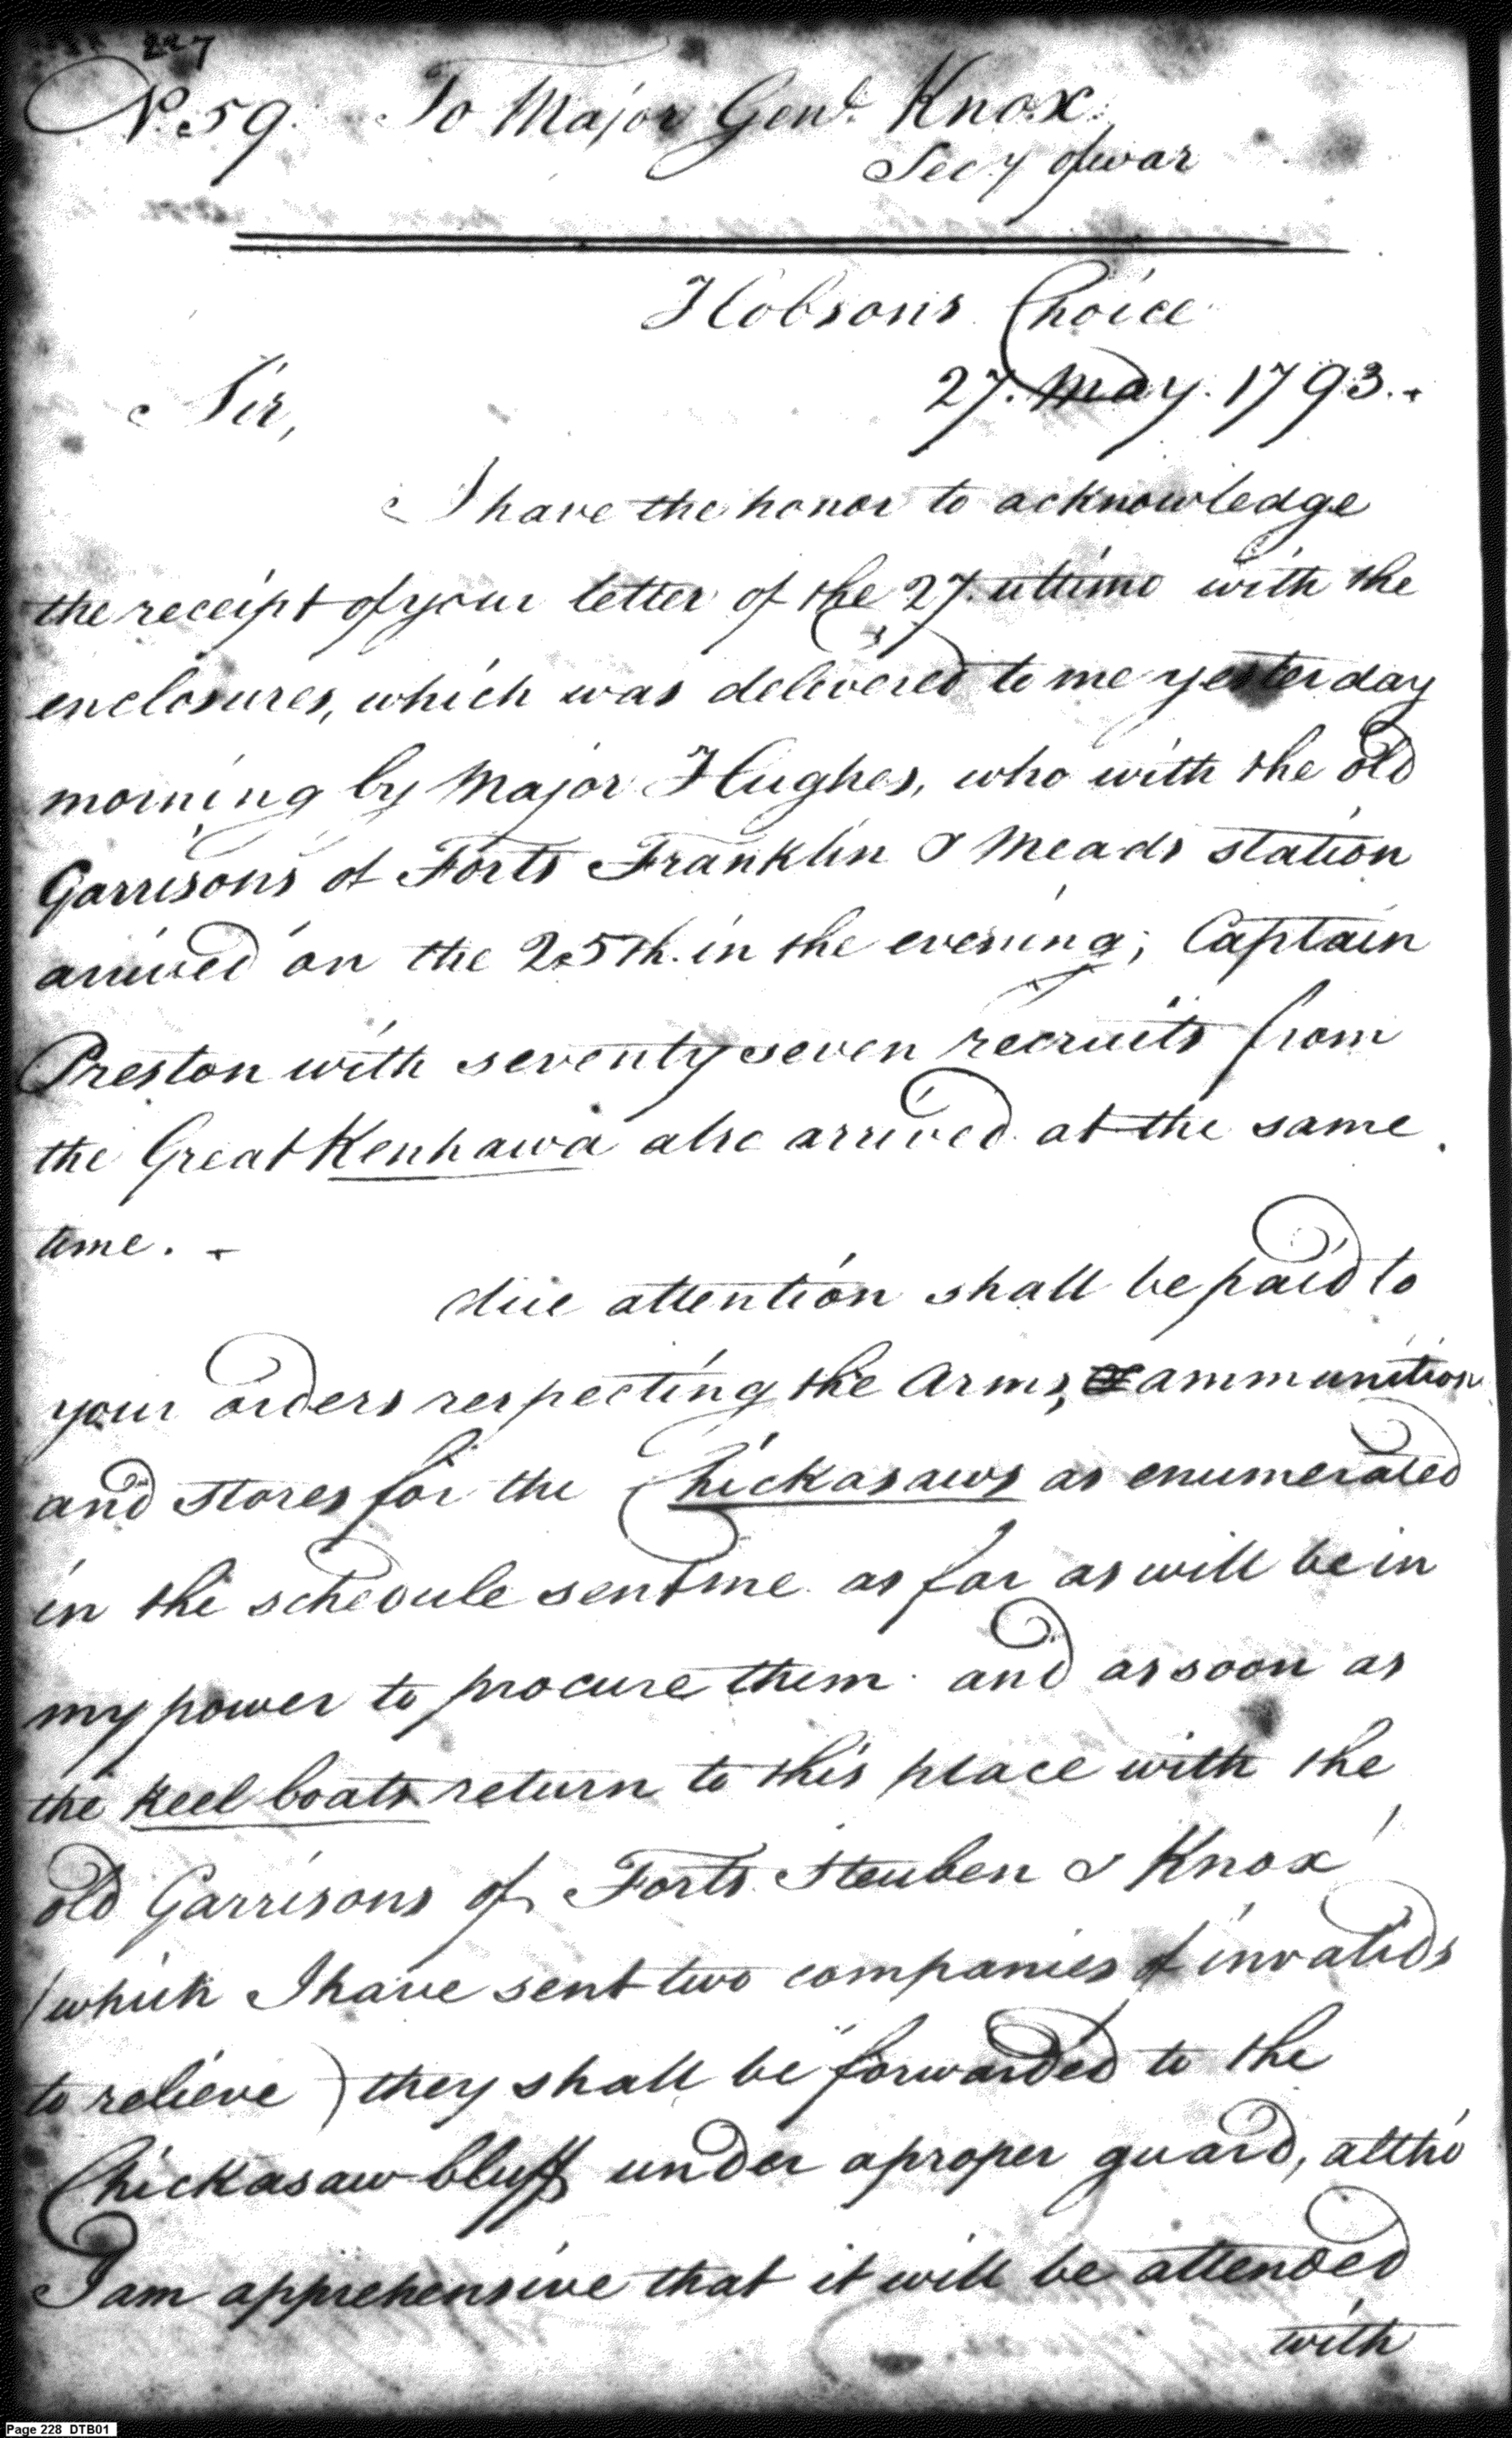 227
No. 59. To Major Genl. Knox
Secy of war
Hobsons Choice
27. May. 1793.
Sir,
I have the honor to acknowledge
the receipt of your letter of the 27. ultimo with the
enclosures, which was delivered to me yesterday
morning by Major Hughes, who with the old
Garrisons of Forts Franklin & Meads station
arrived on the 25th. in the evening; Captain
Preston with seventy seven recruits from
the Great Kenhawa also arrived at the same
time.
due attention shall be paid to
your orders respecting the Arms, ammunition
and stores for the Chickasaws as enumerated
in the schedule sent me as far as will be in
my power to procure them and as soon as
the keel boats return to this place with the
old Garrisons of Forts Steuben & Knox
(which I have sent two companies of invalids
to relieve) they shall be forwarded to the
Chickasaw bluff under a proper guard, altho'
I am apprehensive that it will be attended
with
Page 228 DTB01